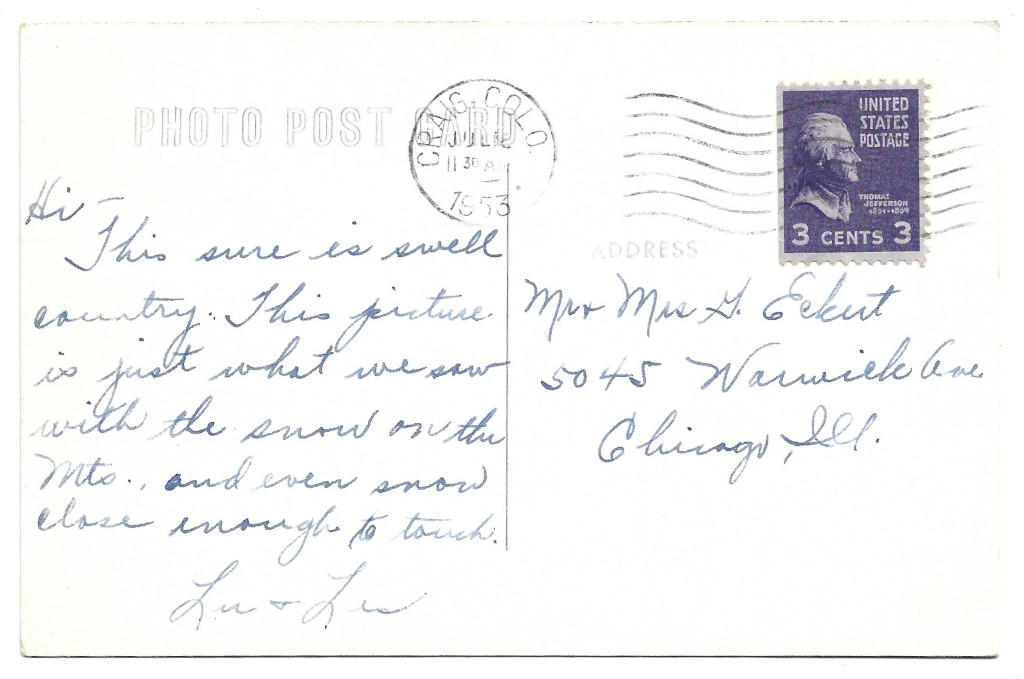 PHOTO POST CARD
CRAIG, COLO.
JUL
11 30 A
1953
UNITED
STATES
POSTAGE
THOMAS
JEFFERSON
1801-1809
3 CENTS 3
ADDRESS
Hi -
This sure is swell
country. This picture
is just what we saw
with the snow on the
Mts., and even snow
close enough to touch.
Lu + Les
Mr + Mrs G. Eckert
5045 Warwick Ave
Chicago, Ill.